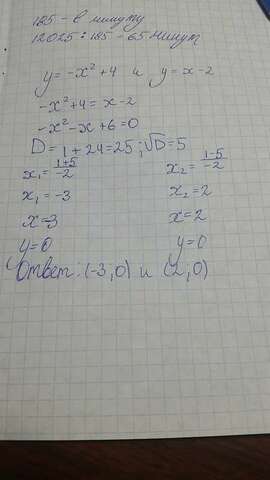 185 - в минуту
12025 : 185 - 65 минут
y = -x²+4 и y = x-2
-x²+4 = x-2
-x²-x+6=0
D = 1+24=25 ; √D=5
x₁= 1+5/-2 x₂= 1-5/-2
x₁ = -3 x₂ = 2
x=-3 x=2
y=0 y=0
Ответ: (-3,0) и (2,0)